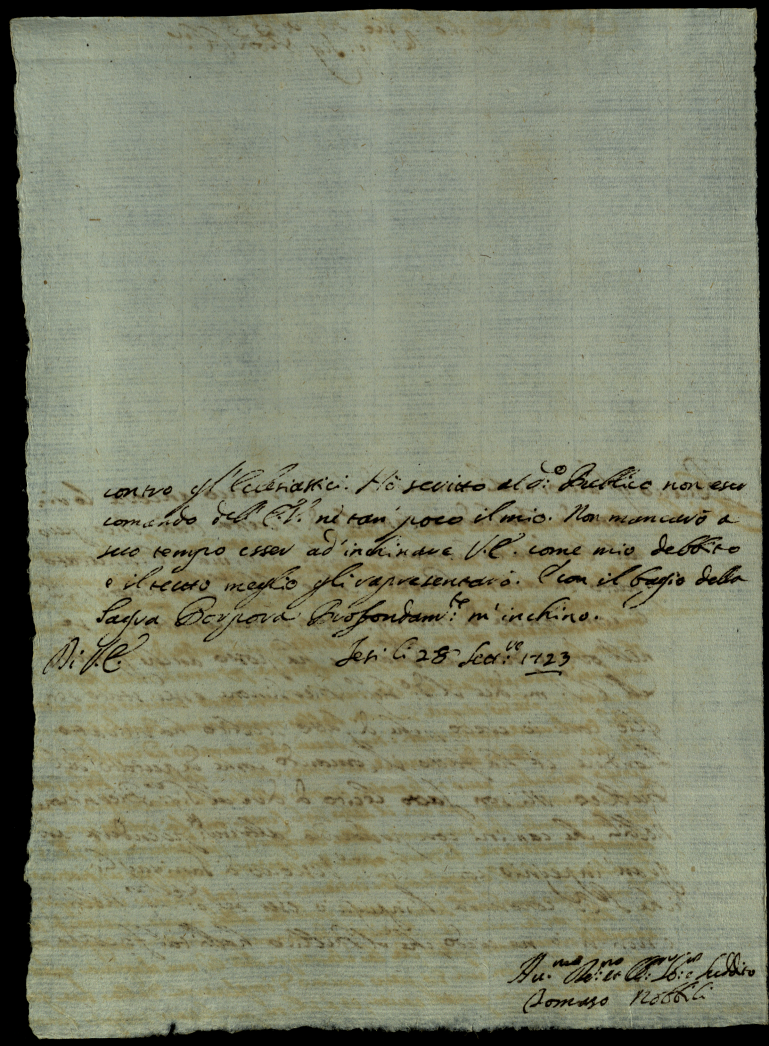 contro gl'Eclesiastici. Hò scritto al d.o Publico non esser
comando dell'E.V. nè tan poco il mio. Non mancarò a
suo tempo esser ad'inchinare V.E. come mio debbito
e il tutto meglio gli rapresentarò. E con il bagio della
Sagra Porpora Profondam.te m'inchino.
Di V.E.
Jesi li 28 Sett.re 1723
Hu.mo Suddito
Tomaso Nobbili